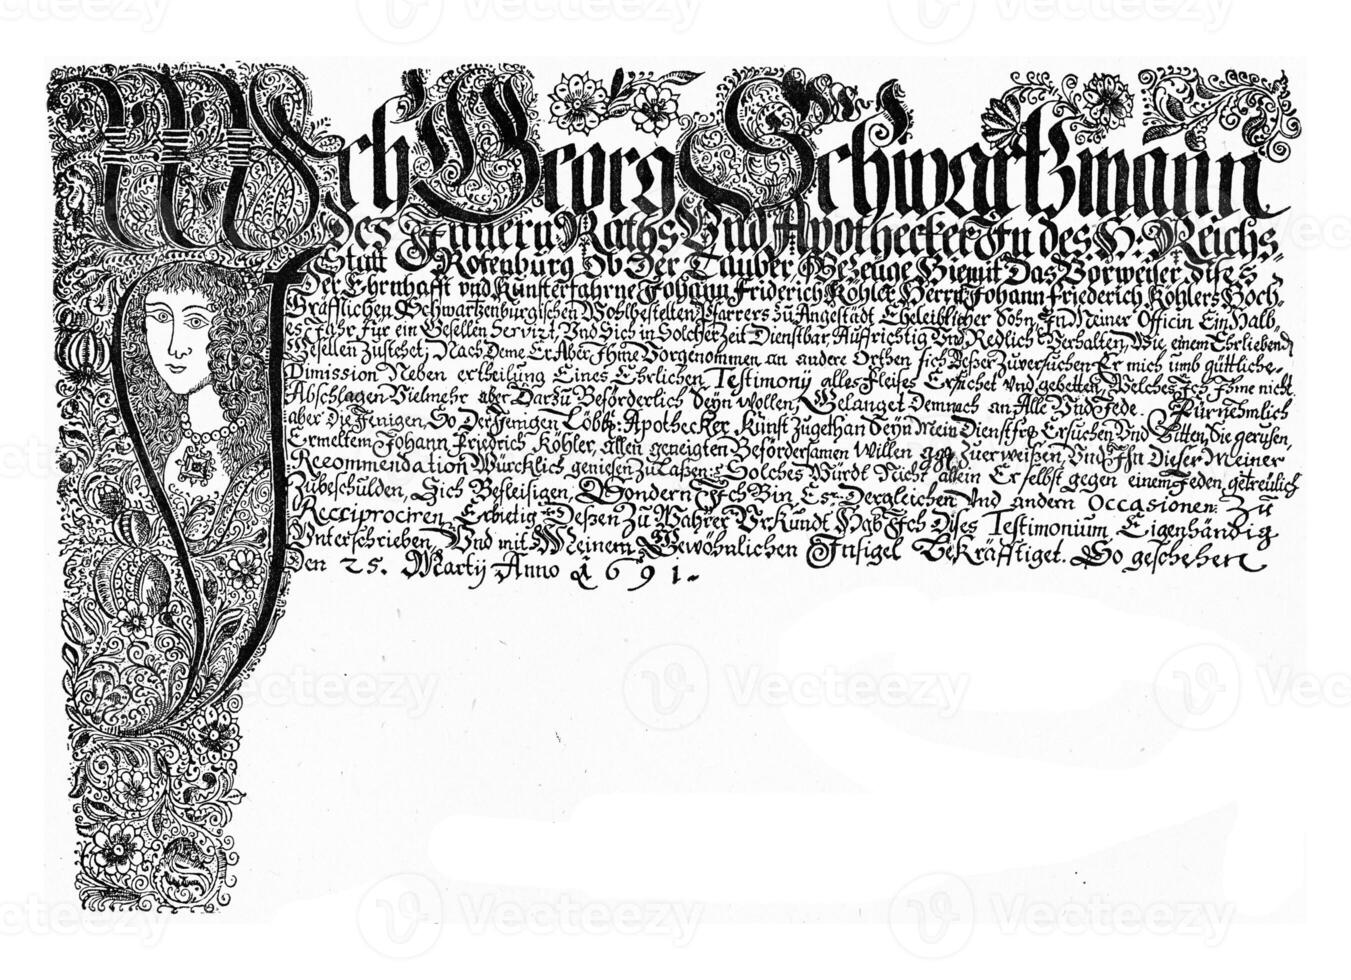 Ich Georg Schwartzmann
Des Innern Raths Und Apothecker In des H: Reichs-
Statt Rotenburg Ob Der Tauber Bezeuge Hiemit Das Vorweiser dises
Der Ehrnhafft vnd Kunsterfahrne Johann Friderich Köhler Herrn Johann Friederich Kohlers Hoch-
Gräfflichen Schwartzenburgischen Wohlbestelten Pfarrers zu Angestädt Eheleiblicher Sohn, In Meiner Officin Ein Halb-
es Jahr für ein Gesellen Servirt, Und Sich in Solcher Zeit Dienstbar, Auffrichtig Und Redlich Verhalten, Wie einem Ehrliebend
Gesellen Zustehet; Nach Deme Er Aber Ihme Vorgenommen an andere Orthen sich Beßer Zuversuchen Er mich umb güttliche-
Dimission Neben ertheilung Eines Ehrlichen Testimonij alles Fleises Ersuchet Und gebetten, Welches Ich Ihme nicht
Abschlagen Vielmehr aber Darzu Beförderlich Seyn wollen, Gelanget Demnach an Alle Und Jede Fürnehmlich
aber Die Jenigen, So Der Jenigen Löbl: Apothecker Kunst Zugethan Seyn Mein Dienstfrs Ersuchen Und Bitten, Sie geruhen,
Ermeltem Johann Friedrich Köhler, allen geneigten Befördersamen Willen Zuerweißen, Und Ihn Dieser Meiner
Recommendation Würcklich genießen Zulaßen: Solches Würdt Nicht allein Er selbst gegen einem Jeden, getreulich
Zubeschulden, Sich Befleisigen, Sondern Ich Bin Es Dergleichen Und andern Occasionen Zu
Recciprociren Erbietig Deßen Zu Wahrer Vrkundt Hab Ich Dises Testimonium Eigenhändig
Unterschrieben, Und mit Meinem Gewöhnlichen Insigel Bekräfftiget. So geschehen
Den 25. Martij Anno 1691.
Vecteezy